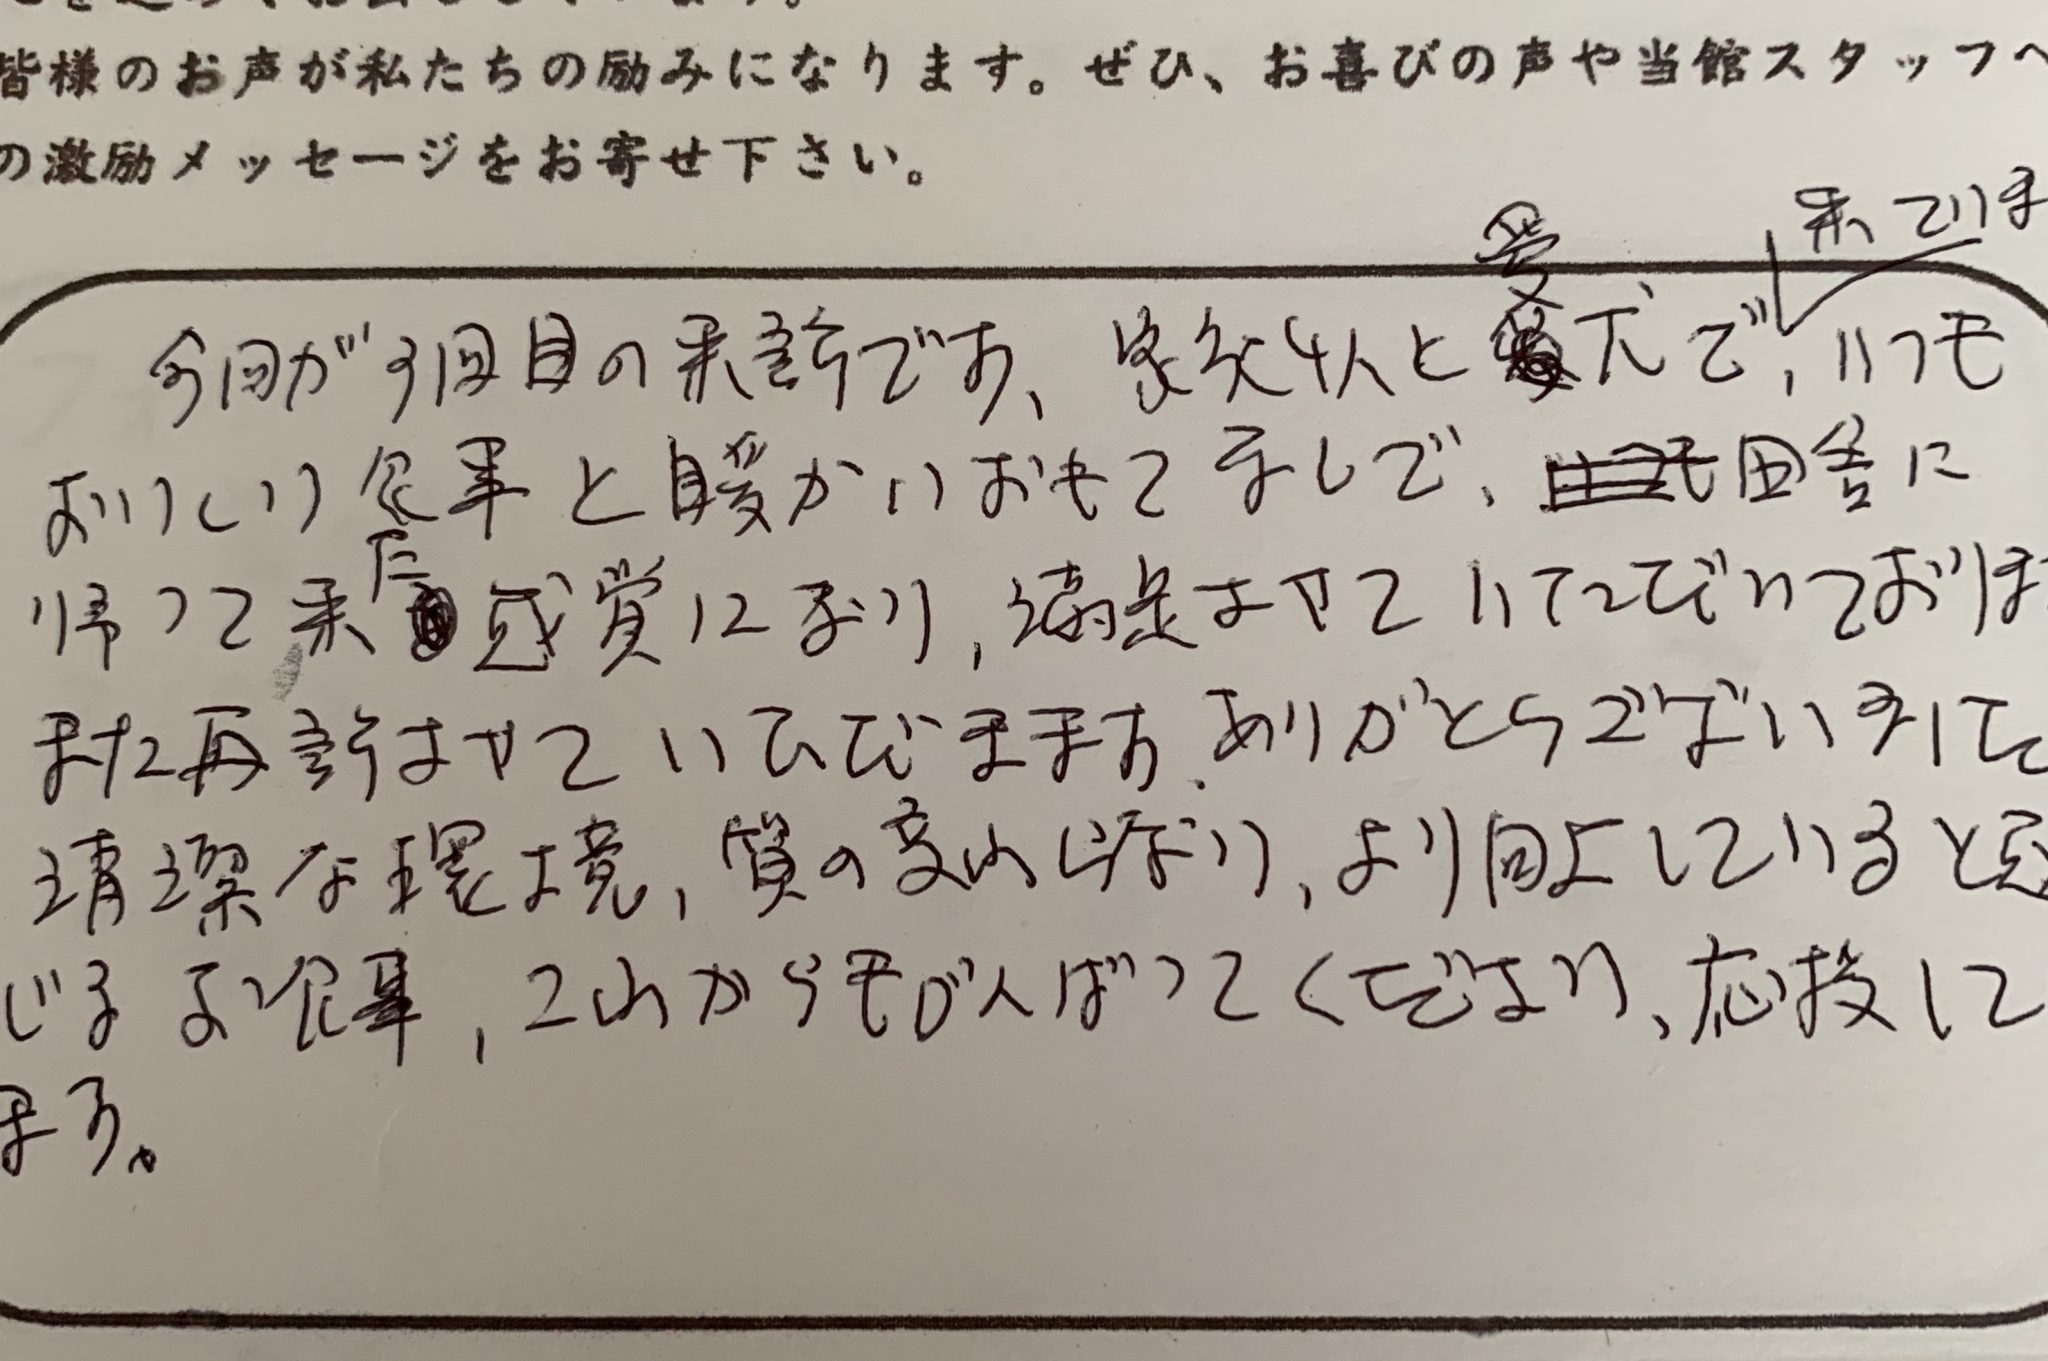 皆様のお声が私たちの励みになります。ぜひ、お喜びの声や当館スタッフへ
の激励メッセージをお寄せ下さい。
来ていま
今回が3回目の来訪です、家族4人と愛犬で、いつも
おいしい食事と暖かいおもてなしで、田舎に
帰って来た感覚になり、満足させていただいておりま
また再訪させていただきます。ありがとうございました
清潔な環境、質の高い、より向上していると感
じるお食事、これからもがんばってください、応援して
ます。